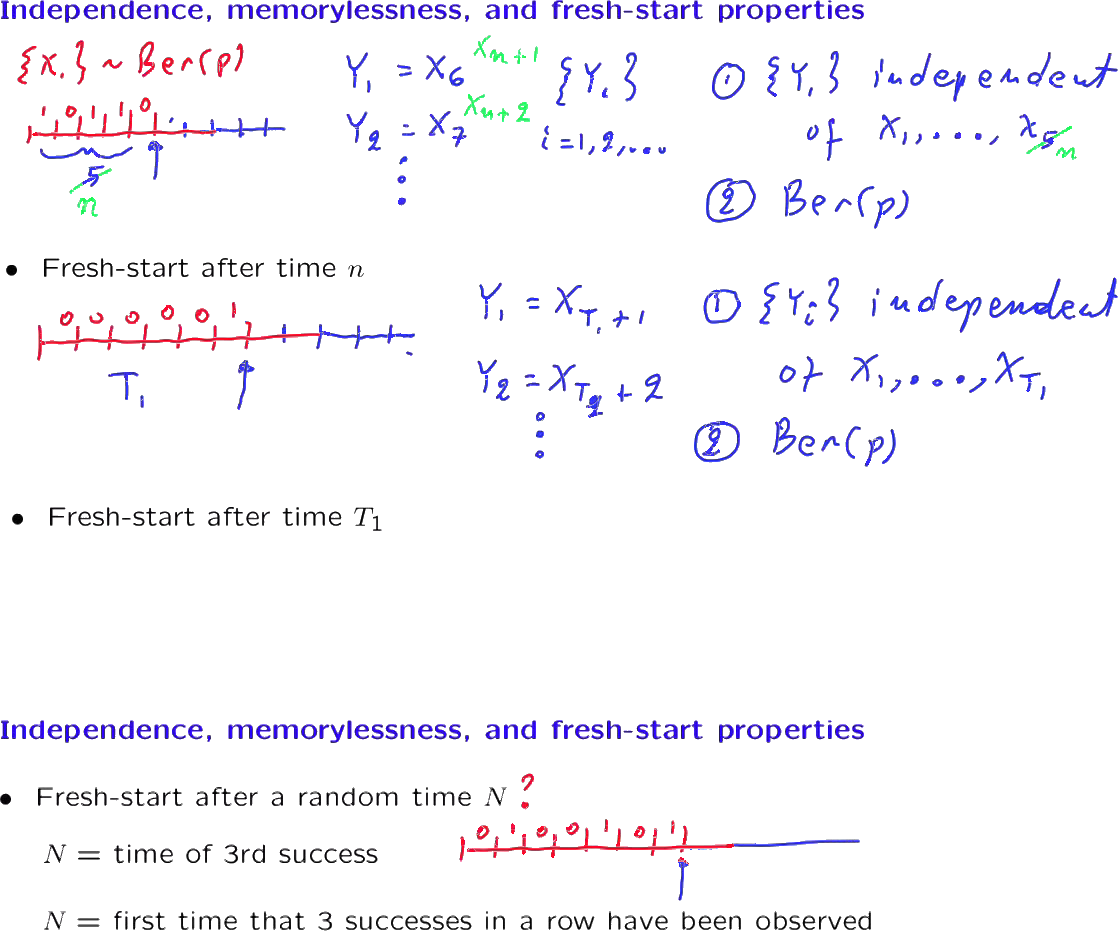 Independence, memorylessness, and fresh-start properties
{X.} ~ Ber(p)
1 0 1 1 0
5
n
Y₁ = X₆ Xₙ₊₁
Y₂ = X₇ Xₙ₊₂
{Yᵢ}
i=1,2,...
① {Y.} independent
of X₁,...,X₅ n
② Ber(p)
• Fresh-start after time n
0 0 0 0 0 1
T₁
Y₁ = X_{T₁+1}
Y₂ = X_{T₂+2}
① {Yᵢ} independent
of X₁,...,X_{T₁}
② Ber(p)
• Fresh-start after time T₁
Independence, memorylessness, and fresh-start properties
• Fresh-start after a random time N ?
N = time of 3rd success
0 1 0 0 1 0 1
N = first time that 3 successes in a row have been observed